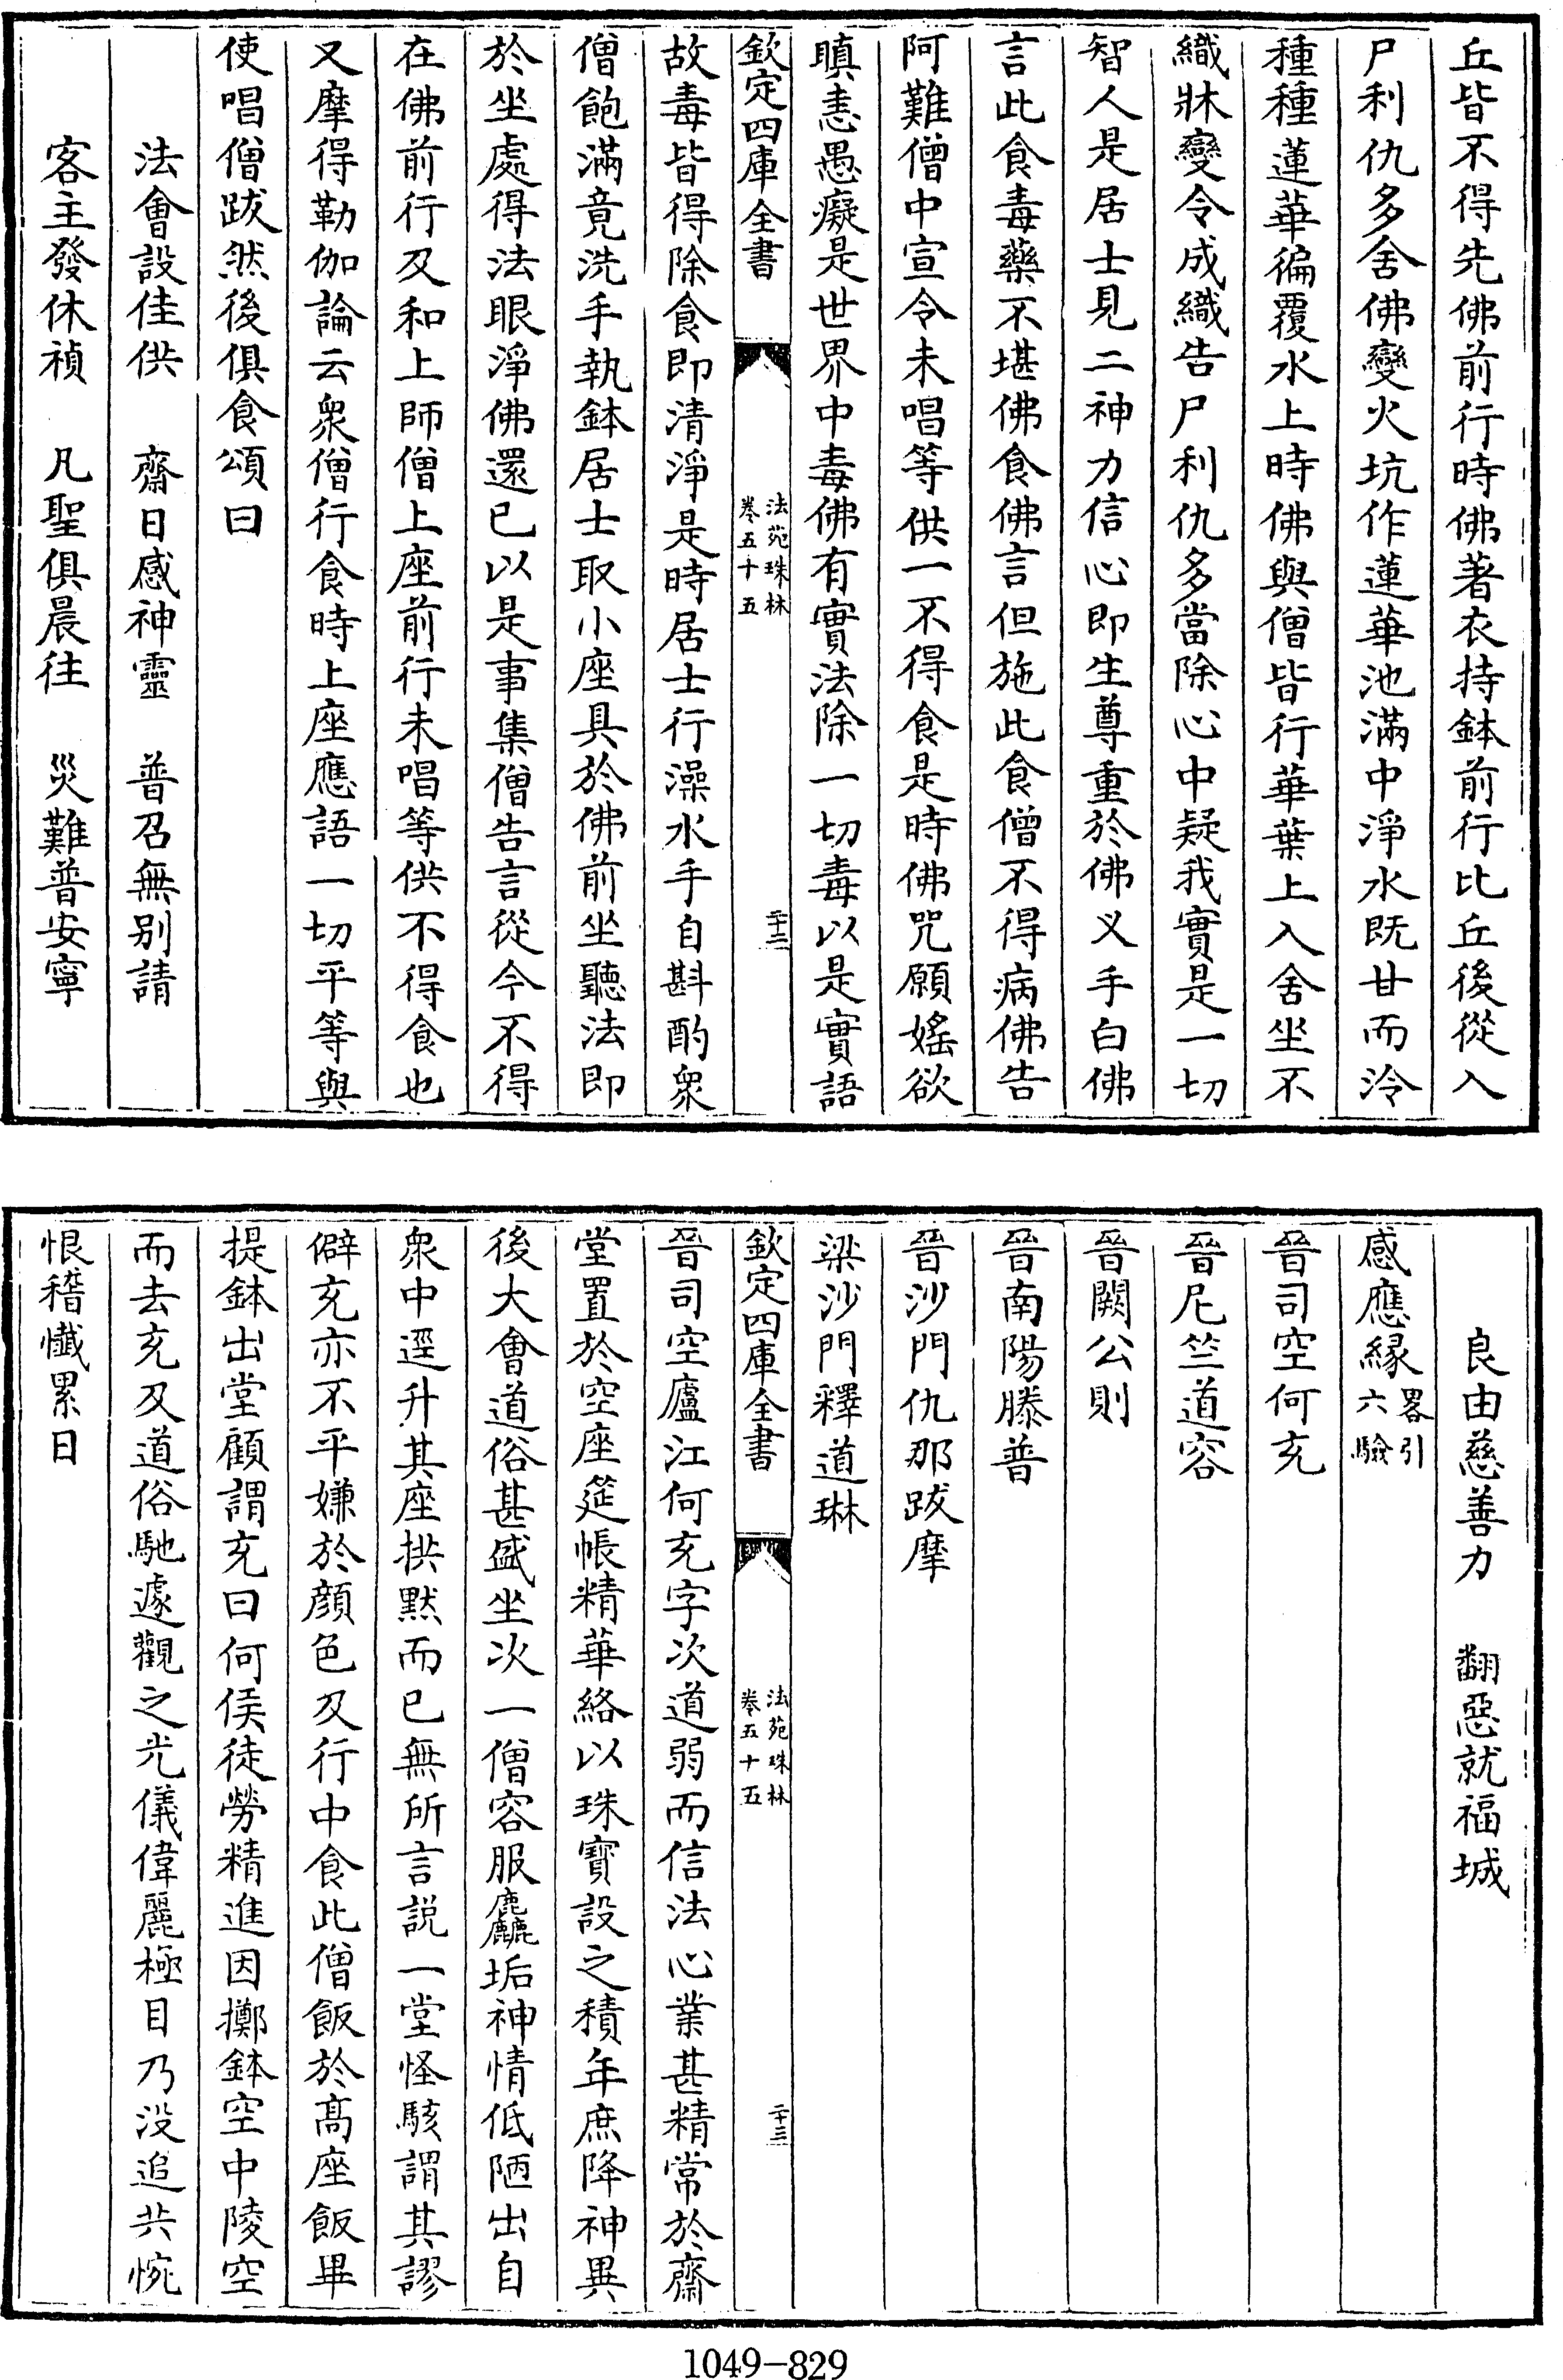 丘皆不得先佛前行時佛著衣持鉢前行比丘後從入
尸利仇多舍佛變火坑作蓮華池滿中淨水既甘而泠
種種蓮華徧覆水上時佛與僧皆行華葉上入舍坐不
織牀變令成織告尸利仇多當除心中疑我實是一切
智人是居士見二神力信心即生尊重於佛义手白佛
言此食毒藥不堪佛食佛言但施此食僧不得病佛告
阿難僧中宣令未唱等供一不得食是時佛咒願婬欲
瞋恚愚癡是世界中毒佛有實法除一切毒以是實語
欽定四庫全書
法苑珠林
卷五十五
二十二
故毒皆得除食即清淨是時居士行澡水手自斟酌衆
僧飽滿竟洗手執鉢居士取小座具於佛前坐聽法即
於坐處得法眼淨佛還已以是事集僧告言從今不得
在佛前行及和上師僧上座前行未唱等供不得食也
又摩得勒伽論云衆僧行食時上座應語一切平等與
使唱僧跋然後俱食頌曰
法會設佳供　齋日感神靈　普召無别請
客主發休禎　凡聖俱晨往　災難普安寧
良由慈善力　翻惡就福城
感應縁畧引六驗
晉司空何充
晉尼竺道容
晉闕公則
晉南陽滕普
晉沙門仇那跋摩
梁沙門釋道琳
欽定四庫全書
法苑珠林
卷五十五
二十三
晉司空廬江何充字次道弱而信法心業甚精常於齋
堂置於空座筵帳精華絡以珠寳設之積年庶降神異
後大會道俗甚盛坐次一僧容服麤垢神情低陋出自
衆中逕升其座拱默而已無所言説一堂怪駭謂其謬
僻充亦不平嫌於顔色及行中食此僧飯於髙座飯畢
提鉢出堂顧謂充曰何侯徒勞精進因擲鉢空中陵空
而去充及道俗馳遽觀之光儀偉麗極目乃没追共惋
恨稽懺累日
1049-829